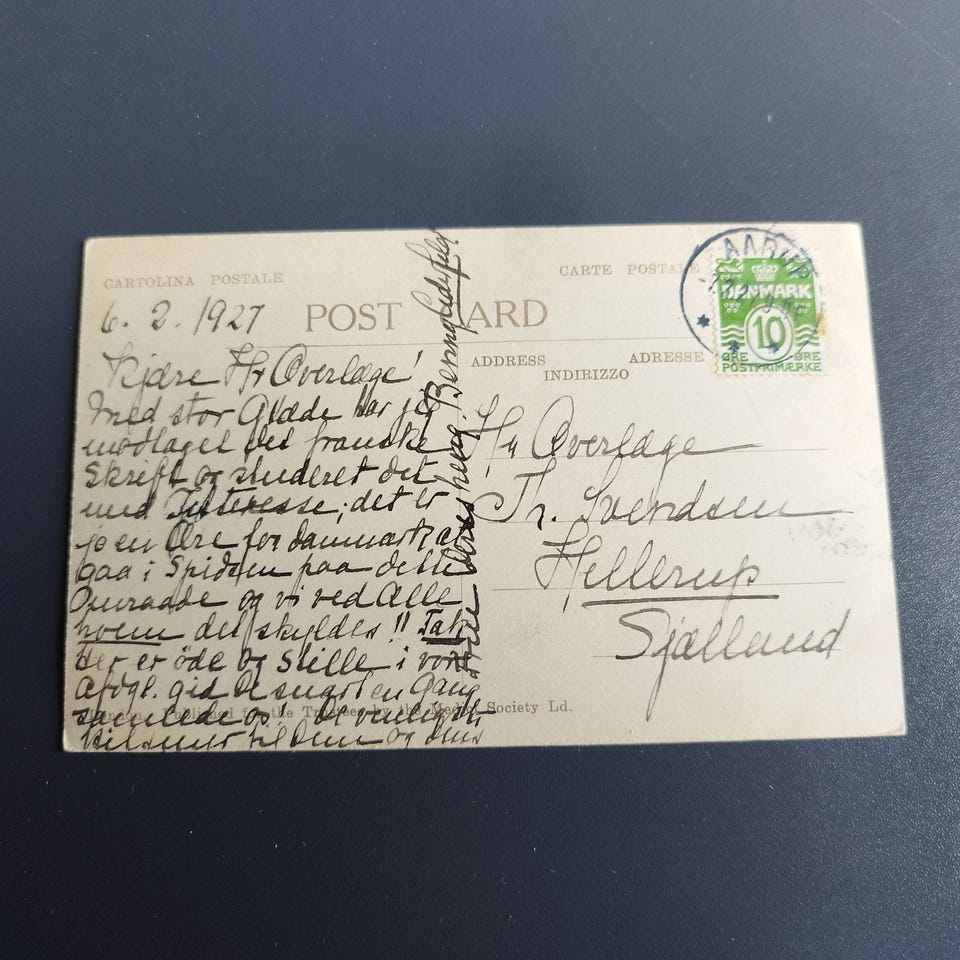 CARTOLINA POSTALE
CARTE POSTALE
POST ARD
ADDRESS
ADRESSE
INDIRIZZO
AARH
DANMARK
10
ØRE ØRE
POSTFRIMÆRKE
6. 2. 1927
Kjære Hr Overlæge!
Med stor Glæde har jeg
modtaget det franske
Skrift og studeret det
med Interesse; det er
jo en Ære for Danmark at
gaa i Spidsen paa dette
Omraade og vi ved Alle
hvem det skyldes!! Tak
Her er öde og Stille i vor
Afdgl. gid De snart en Gang
samlede os! De venligste
Hilsener til Dem og Deres
Deres heng. Henny
Hr Overlæge
Th. Svendsen
Hellerup
Sjælland
Published for the Trustees by the Medici Society Ld.